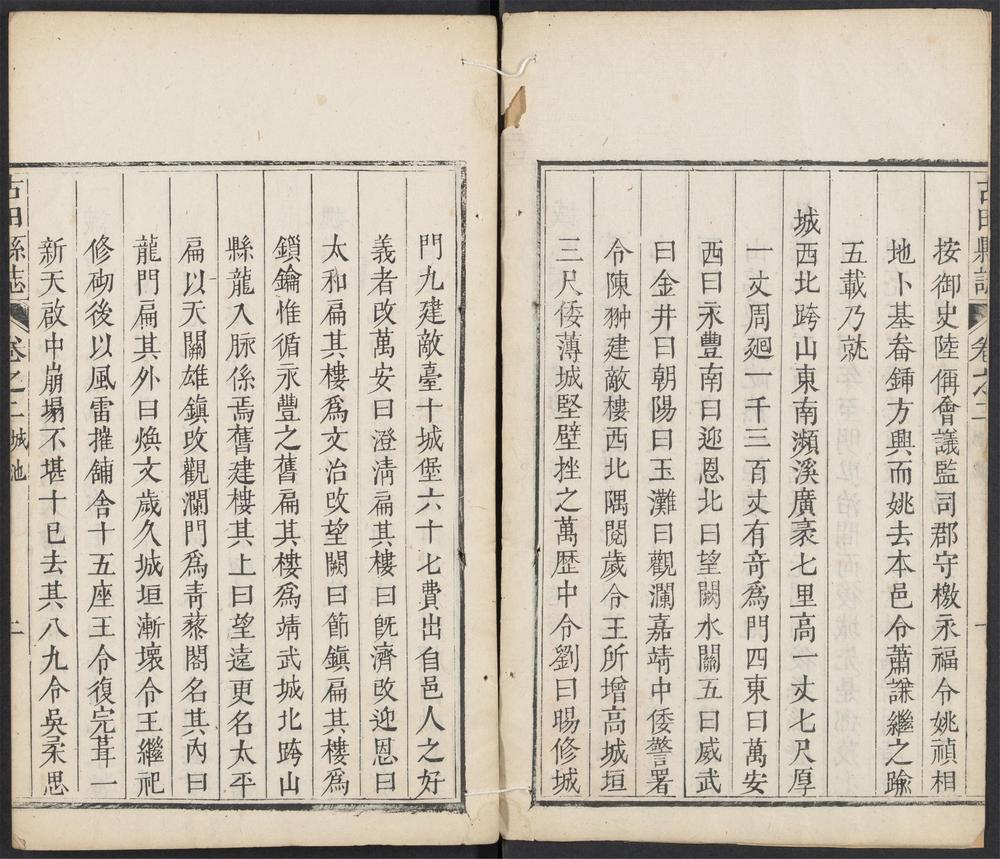 古田縣誌 卷之二
按御史陸偁會議監司郡守檄永福令姚禎相
地卜基畚鍤方興而姚去本邑令蕭謙繼之踰
五載乃就
城西北跨山東南瀕溪廣豪七里高一丈七尺厚
一丈周廻一千三百丈有奇爲門四東曰萬安
西曰永豐南曰迎恩北曰望闕水關五曰威武
曰金井曰朝陽曰玉灘曰觀瀾嘉靖中倭警署
令陳翀建敵樓西北隅閱歲令王所增高城垣
三尺倭薄城堅壁挫之萬歷中令劉日暘修城
門九建敵臺十城堡六十七費出自邑人之好
義者改萬安曰澄清扁其樓曰旣濟改迎恩曰
太和扁其樓爲文治改望闕曰節鎮扁其樓爲
鎖鑰惟循永豐之舊扁其樓爲靖武城北跨山
縣龍入脉係焉舊建樓其上曰望遠更名太平
扁以天關雄鎮改觀瀾門爲靑藜閣名其內曰
龍門扁其外曰煥文歲久城垣漸壞令王繼祀
修砌後以風雷摧舖舍十五座王令復完葺一
新天啟中崩塌不堪十已去其八九令吳來思
古田縣誌 卷之二 城池 二